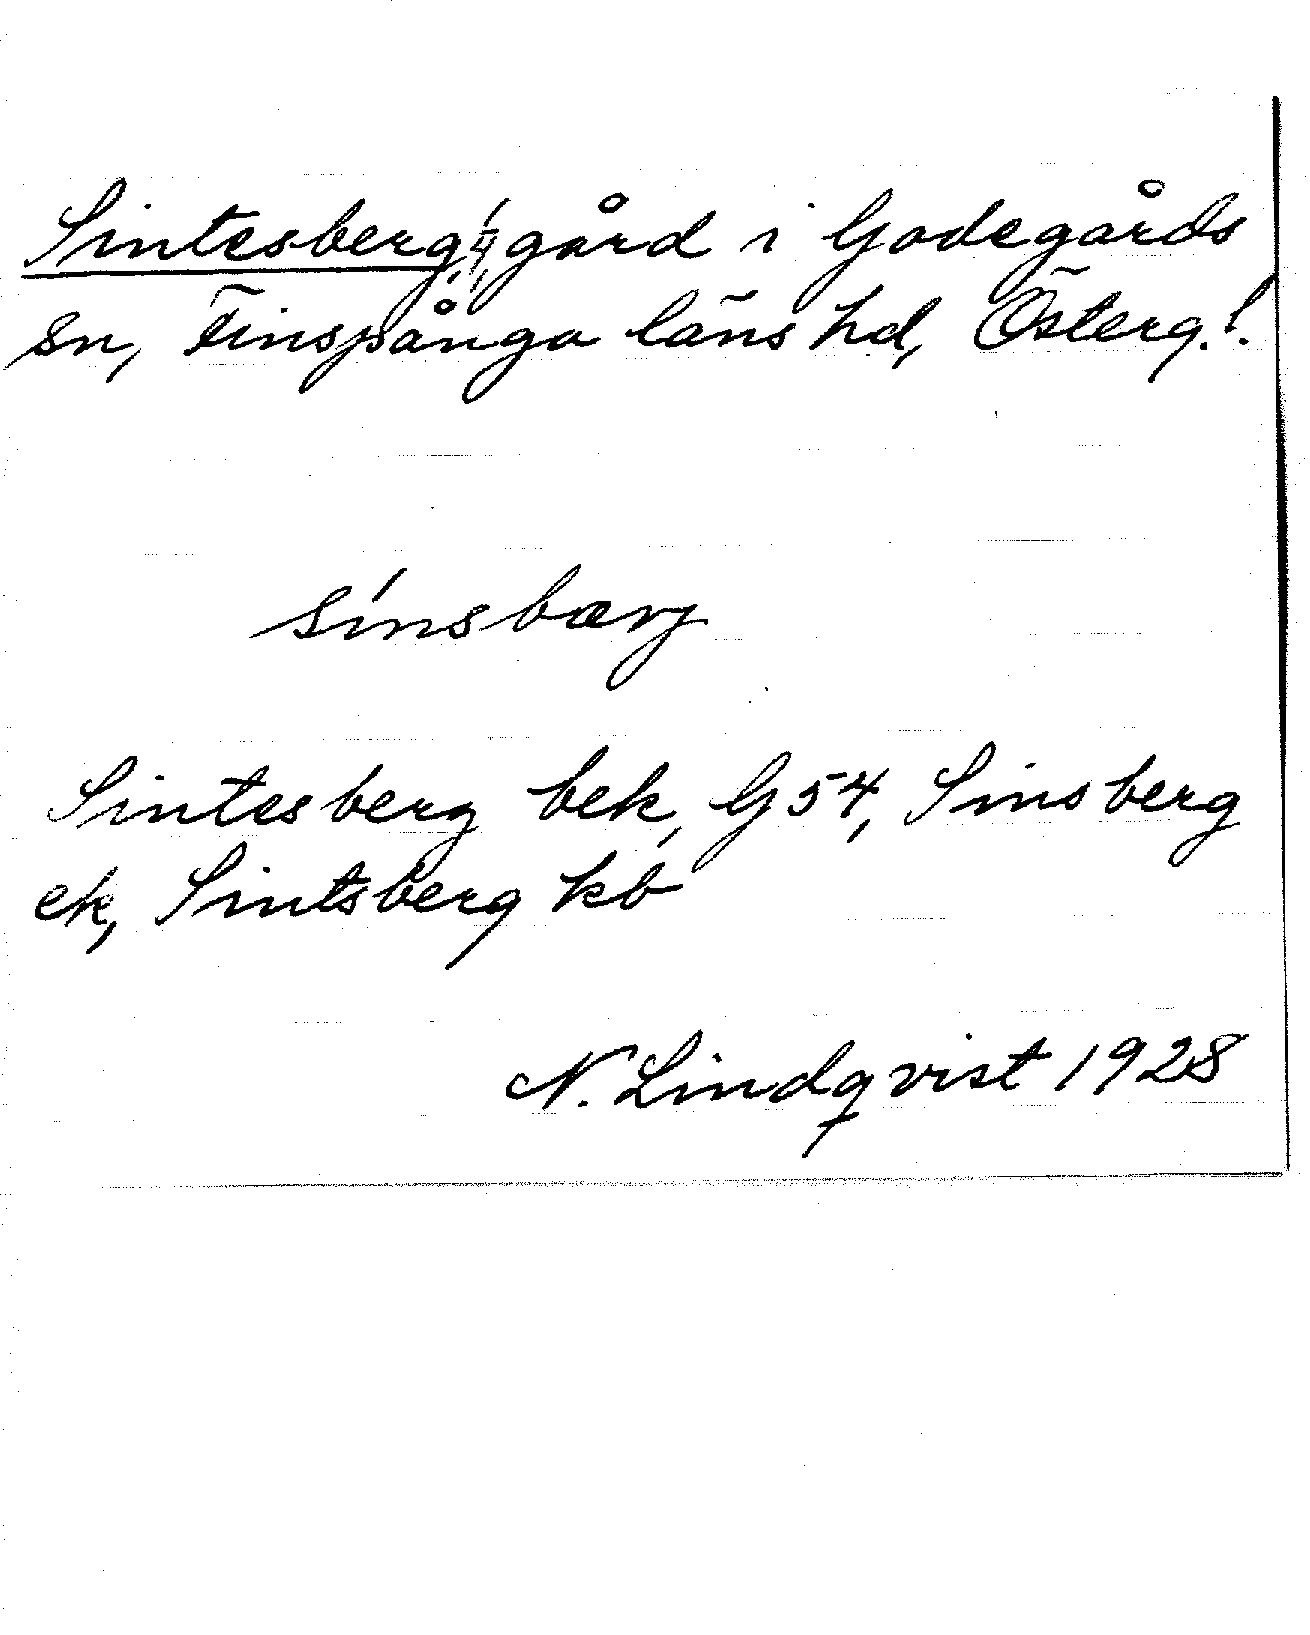 Sintesberg, 1/4, gård i Godegårds
sn, Finspånga läns hd, Österg.l.
sínsbærj
Sintesberg bek, G54, Sinsberg
ek, Sintsberg kb
N. Lindqvist 1928